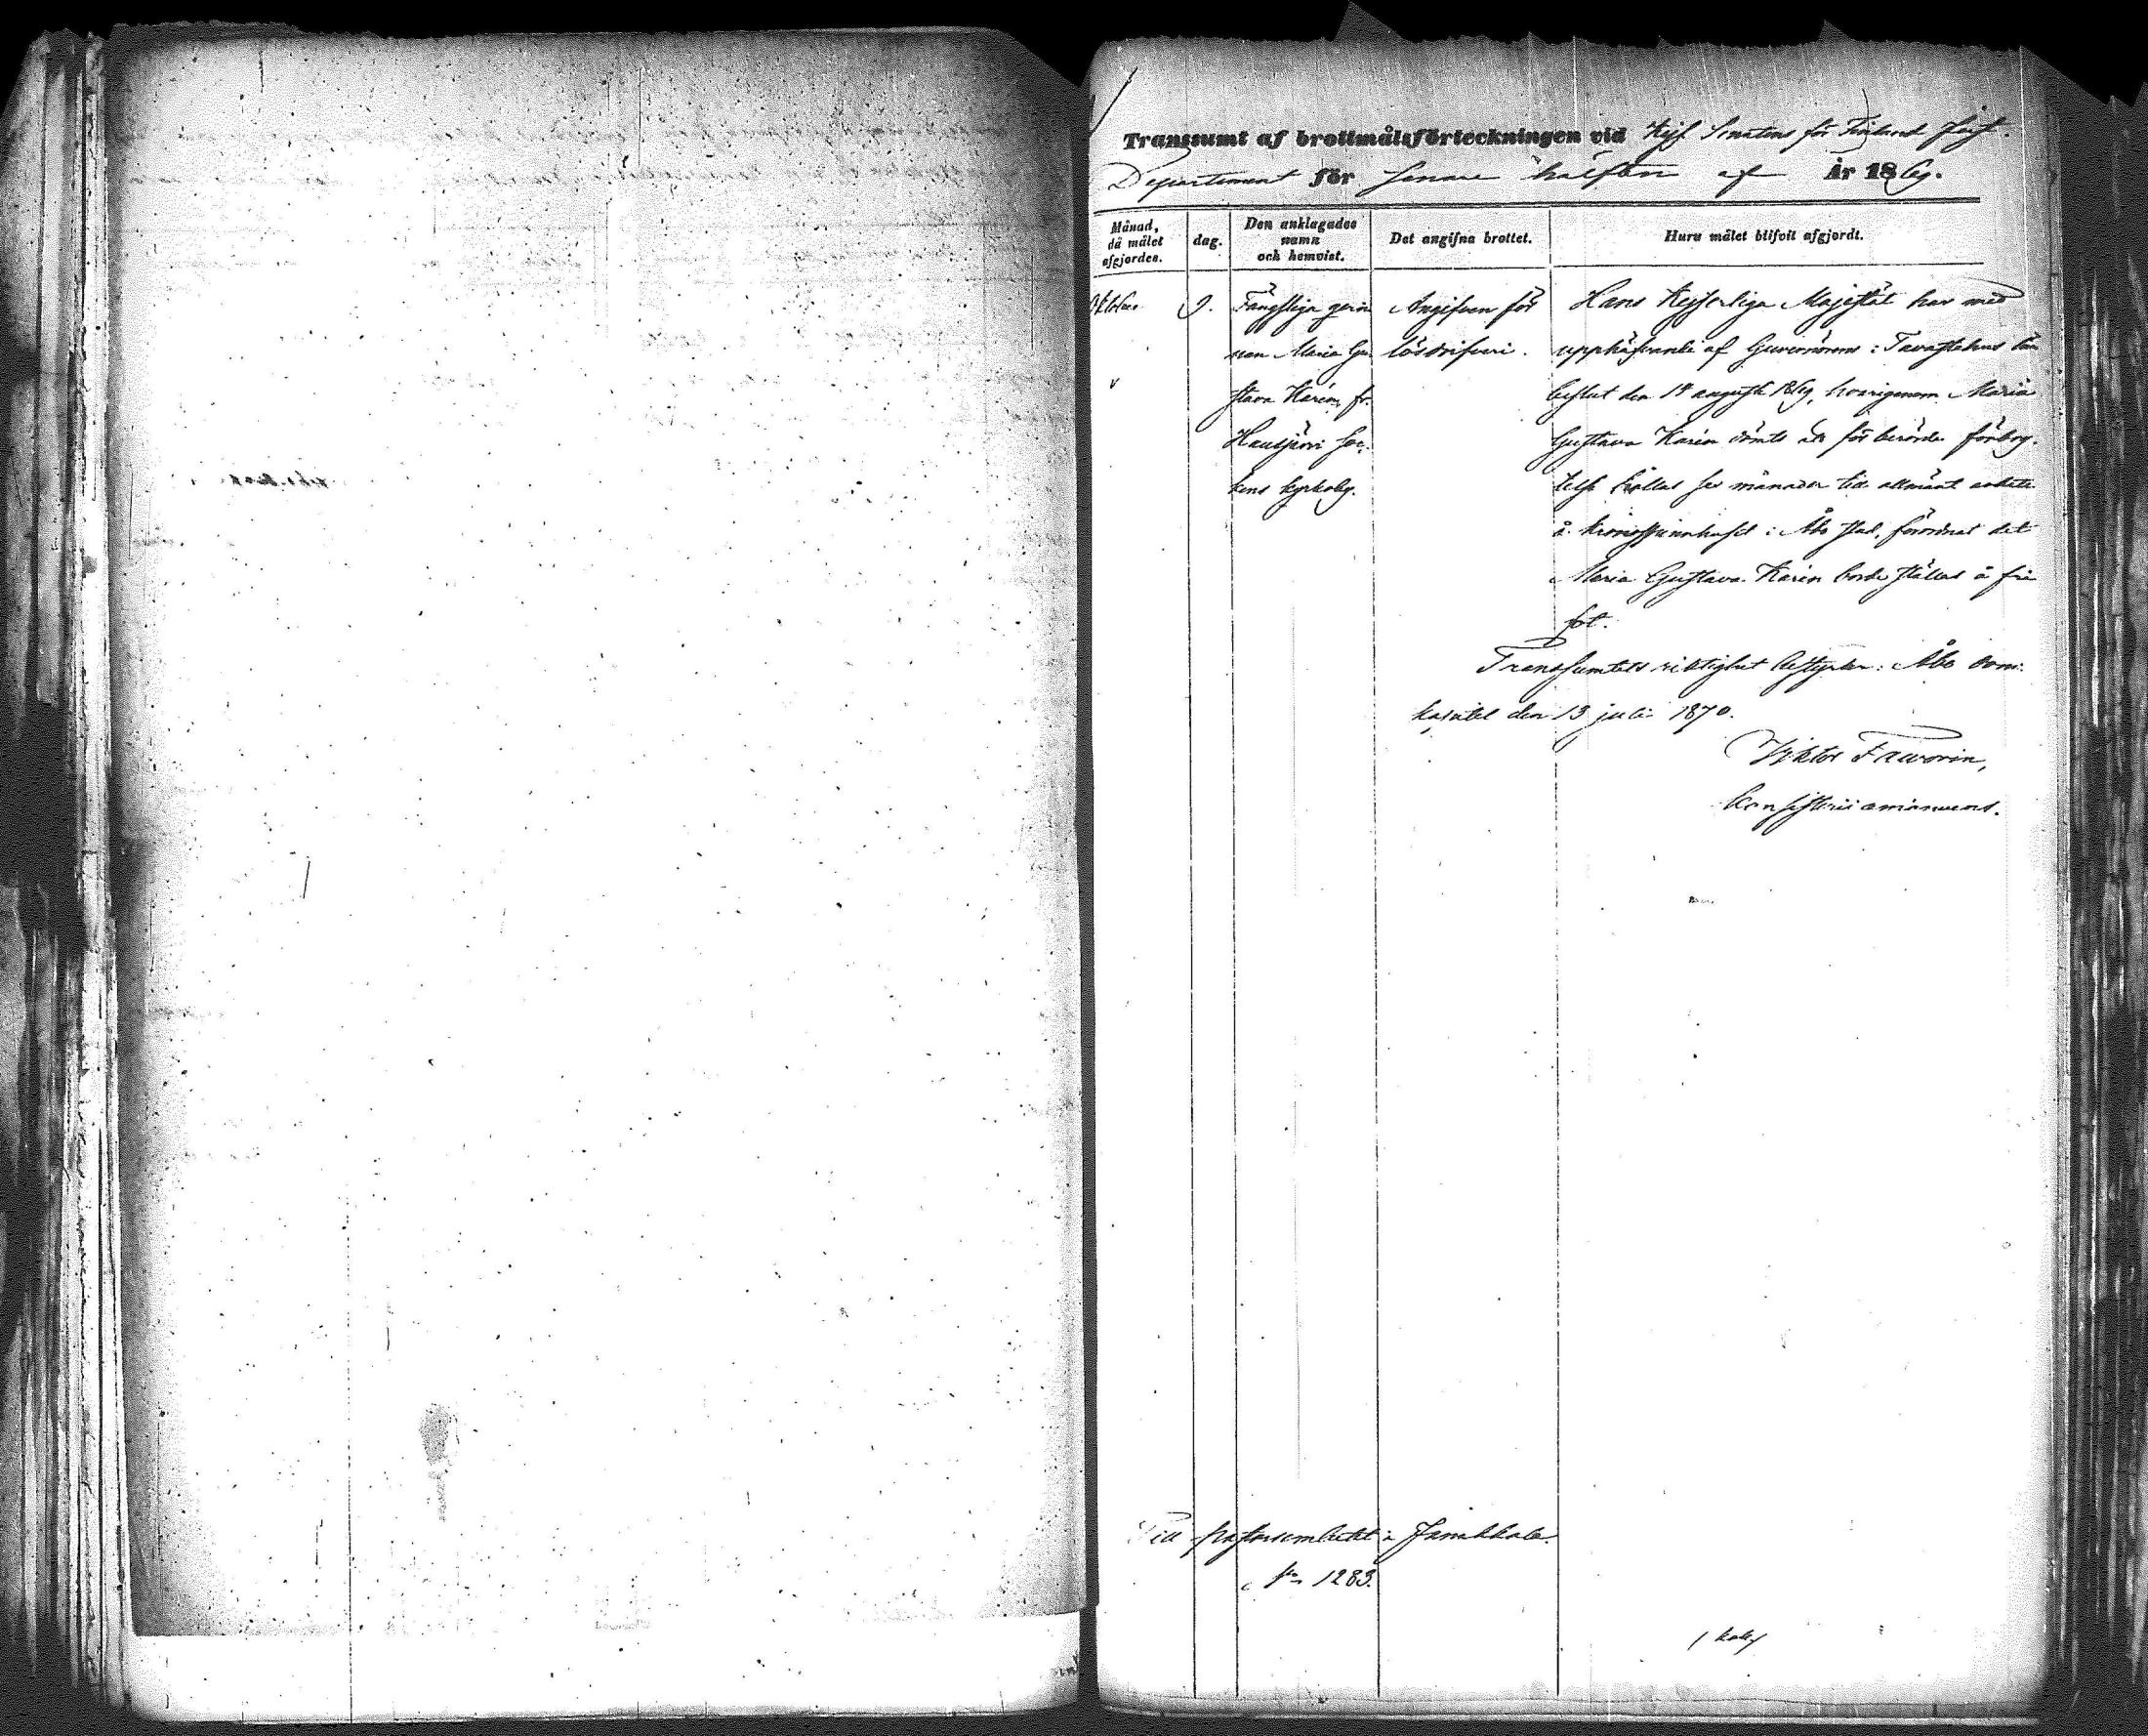 Transsumt af brottmålsförteckningen vid Kejs. Senatens för Finland Just.
Departement för senare hälften af År 1869.
Månad, då målet afgjordes.
dag.
Den anklagades namn och hemvist.
Det angifna brottet.
Huru målet blifvit afgjordt.
Oktober
9.
Fängsliga qvin
nan Maria Gu
stava Karin, fr.
Hausjärvi soc
kens kyrkoby.
Angifven för
lösdrifveri.
Hans Kejserliga Majestät har med
upphäfvande af Guvernörens i Tavastehus län
beslut den 18 augusti 1869, hvarigenom Maria
Gustava Karin dömts att för berörde förbry-
telse hållas sex månader till allmänt arbete
å kronospinnhuset i Åbo stad, förordnat det
Maria Gustava Karin borde ställas å fri
fot.
Transsumtets riktighet bestyrker: Åbo dom-
kapitel den 13 juli 1870.
Viktor Favorin,
konsistorii amanuens.
Till pastorsembetet i Janakkala.
1283.